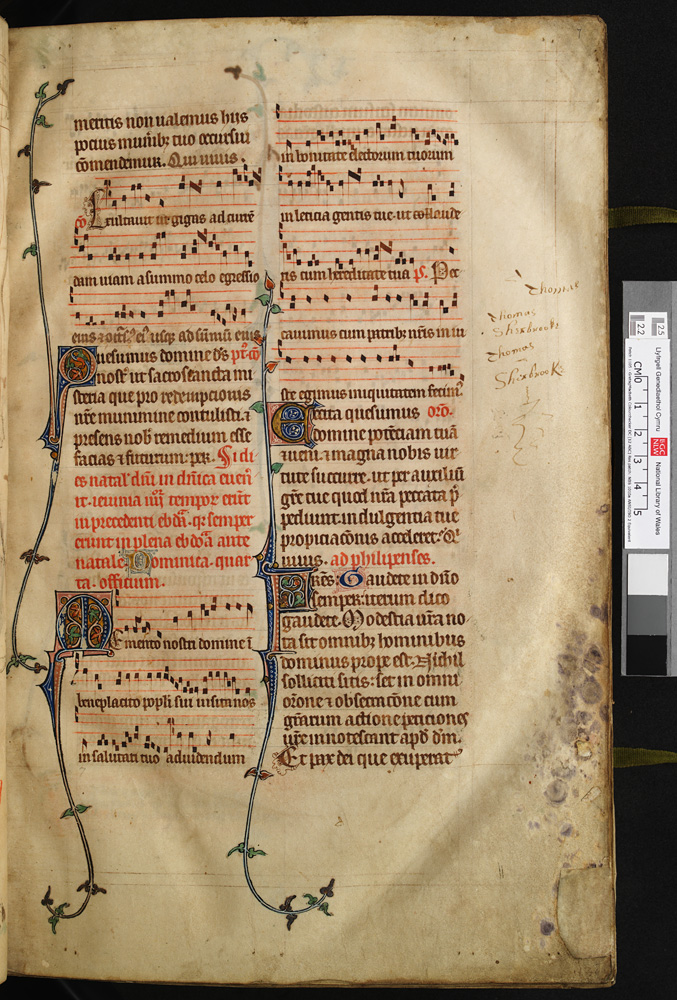 meritis non ualemus hiis
potius munib; tuo occursui
cōmendemur. Qui uiuis.
cō Exultauit ut gigas ad currē
dam uiam a summo celo egressio
eius usq; ad sūmū eius
Quesumus domine ds pt' cō
nost' ut sacrosancta mi
steria que pro redempcionis
nr̄e munimine contulisti. ⁊
presens nob̄ remedium esse
facias ⁊ futurum. per. Si di
es natal' dn̄i in dn̄ica euen̄
it. ieiunia iiijor tempor erūt
in precedenti ebdā. q; semper
erunt in plena ebdōā ante
natale. Dominica quar
ta. officium.
Memento nostri domine ī
beneplacito popl̄i tui uisita nos
in salutari tuo ad uidendum
in bonitate electorum tuorum
in leticia gentis tue. ut collaude
ris cum hereditate tua ps. Pec
cauimus cum patrib; nr̄is in iu
ste egimus iniquitatem fecim'
Excita quesumus orō.
domine potēciam tuā
⁊ ueni. ⁊ magna nobis uir
tute succurre. ut per auxiliū
gr̄e tue quod nr̄a peccata p̄
pediunt. indulgentia tue
propiciac̄onis acceleret. Q'
uiuis. ad philipenses.
Fr̄es. Gaudete in dn̄o
semper: iterum dico
gaudete. Modestia ur̄a no
ta sit omnib; hominibus
dominus prope est. Nichil
solliciti sitis: set in omni
or̄one ⁊ obsecrac̄one cum
gr̄arum actione peticiones
ur̄e innotescant apd' dm̄.
Et pax dei que exuperat
Thomas
Thomas
Sherbrooke
Thomas
Sherbrooke
Llyfrgell Genedlaethol Cymru
National Library of Wales
LLGC
NLW
CM 0 1 2 3 4 5
2.2
2.5